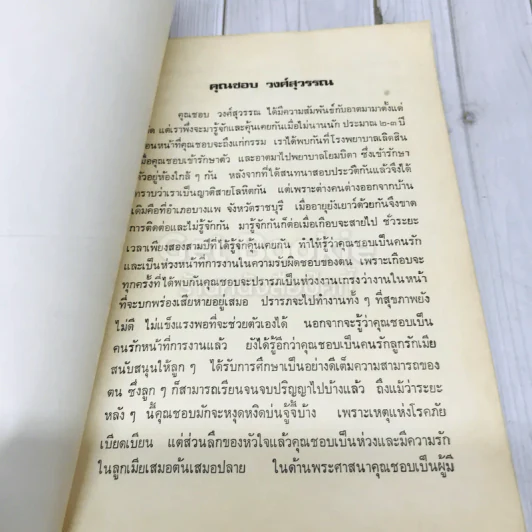 คุณชอบ วงศ์สุวรรณ
คุณชอบ วงศ์สุวรรณ ได้มีความสัมพันธ์กับอาตมามาตั้งแต่
เกิด แต่เราพึ่งจะมารู้จักและคุ้นเคยกันเมื่อไม่นานนัก ประมาณ ๒-๓ ปี
ก่อนหน้าที่คุณชอบจะถึงแก่กรรม เราได้พบกันที่โรงพยาบาลเลิดสิน
เมื่อคุณชอบเข้ารักษาตัว และอาตมาไปพยาบาลโยมบิดา ซึ่งเข้ารักษา
ตัวอยู่ห้องใกล้ ๆ กัน หลังจากที่ได้สนทนาสอบประวัติกันแล้วจึงได้
ทราบว่าเราเป็นญาติสายโลหิตกัน แต่เพราะต่างคนต่างออกจากบ้าน
เดิมคือที่อำเภอบางแพ จังหวัดราชบุรี เมื่ออายุยังเยาว์ด้วยกันจึงขาด
การติดต่อและไม่รู้จักกัน มารู้จักกันก็ต่อเมื่อเกือบจะสายไป ชั่วระยะ
เวลาเพียงสองสามปีที่ได้รู้จักคุ้นเคยกัน ทำให้รู้ว่าคุณชอบเป็นคนรัก
และเป็นห่วงหน้าที่การงานในความรับผิดชอบของตน เพราะเกือบจะ
ทุกครั้งที่ได้พบกันคุณชอบจะปรารภเป็นห่วงงานเกรงว่างานในหน้า
ที่จะบกพร่องเสียหายอยู่เสมอ ปรารภจะไปทำงานทั้ง ๆ ที่สุขภาพยัง
ไม่ดี ไม่แข็งแรงพอที่จะช่วยตัวเองได้ นอกจากจะรู้ว่าคุณชอบเป็น
คนรักหน้าที่การงานแล้ว ยังได้รู้อีกว่าคุณชอบเป็นคนรักลูกรักเมีย
สนับสนุนให้ลูก ๆ ได้รับการศึกษาเป็นอย่างดีเต็มความสามารถของ
ตน ซึ่งลูก ๆ ก็สามารถเรียนจนจบปริญญาไปบ้างแล้ว ถึงแม้ว่าระยะ
หลัง ๆ นี้คุณชอบมักจะหงุดหงิดบ่นจู้จี้บ้าง เพราะเหตุแห่งโรคภัย
เบียดเบียน แต่ส่วนลึกของหัวใจแล้วคุณชอบเป็นห่วงและมีความรัก
ในลูกเมียเสมอต้นเสมอปลาย ในด้านพระศาสนาคุณชอบเป็นผู้มี